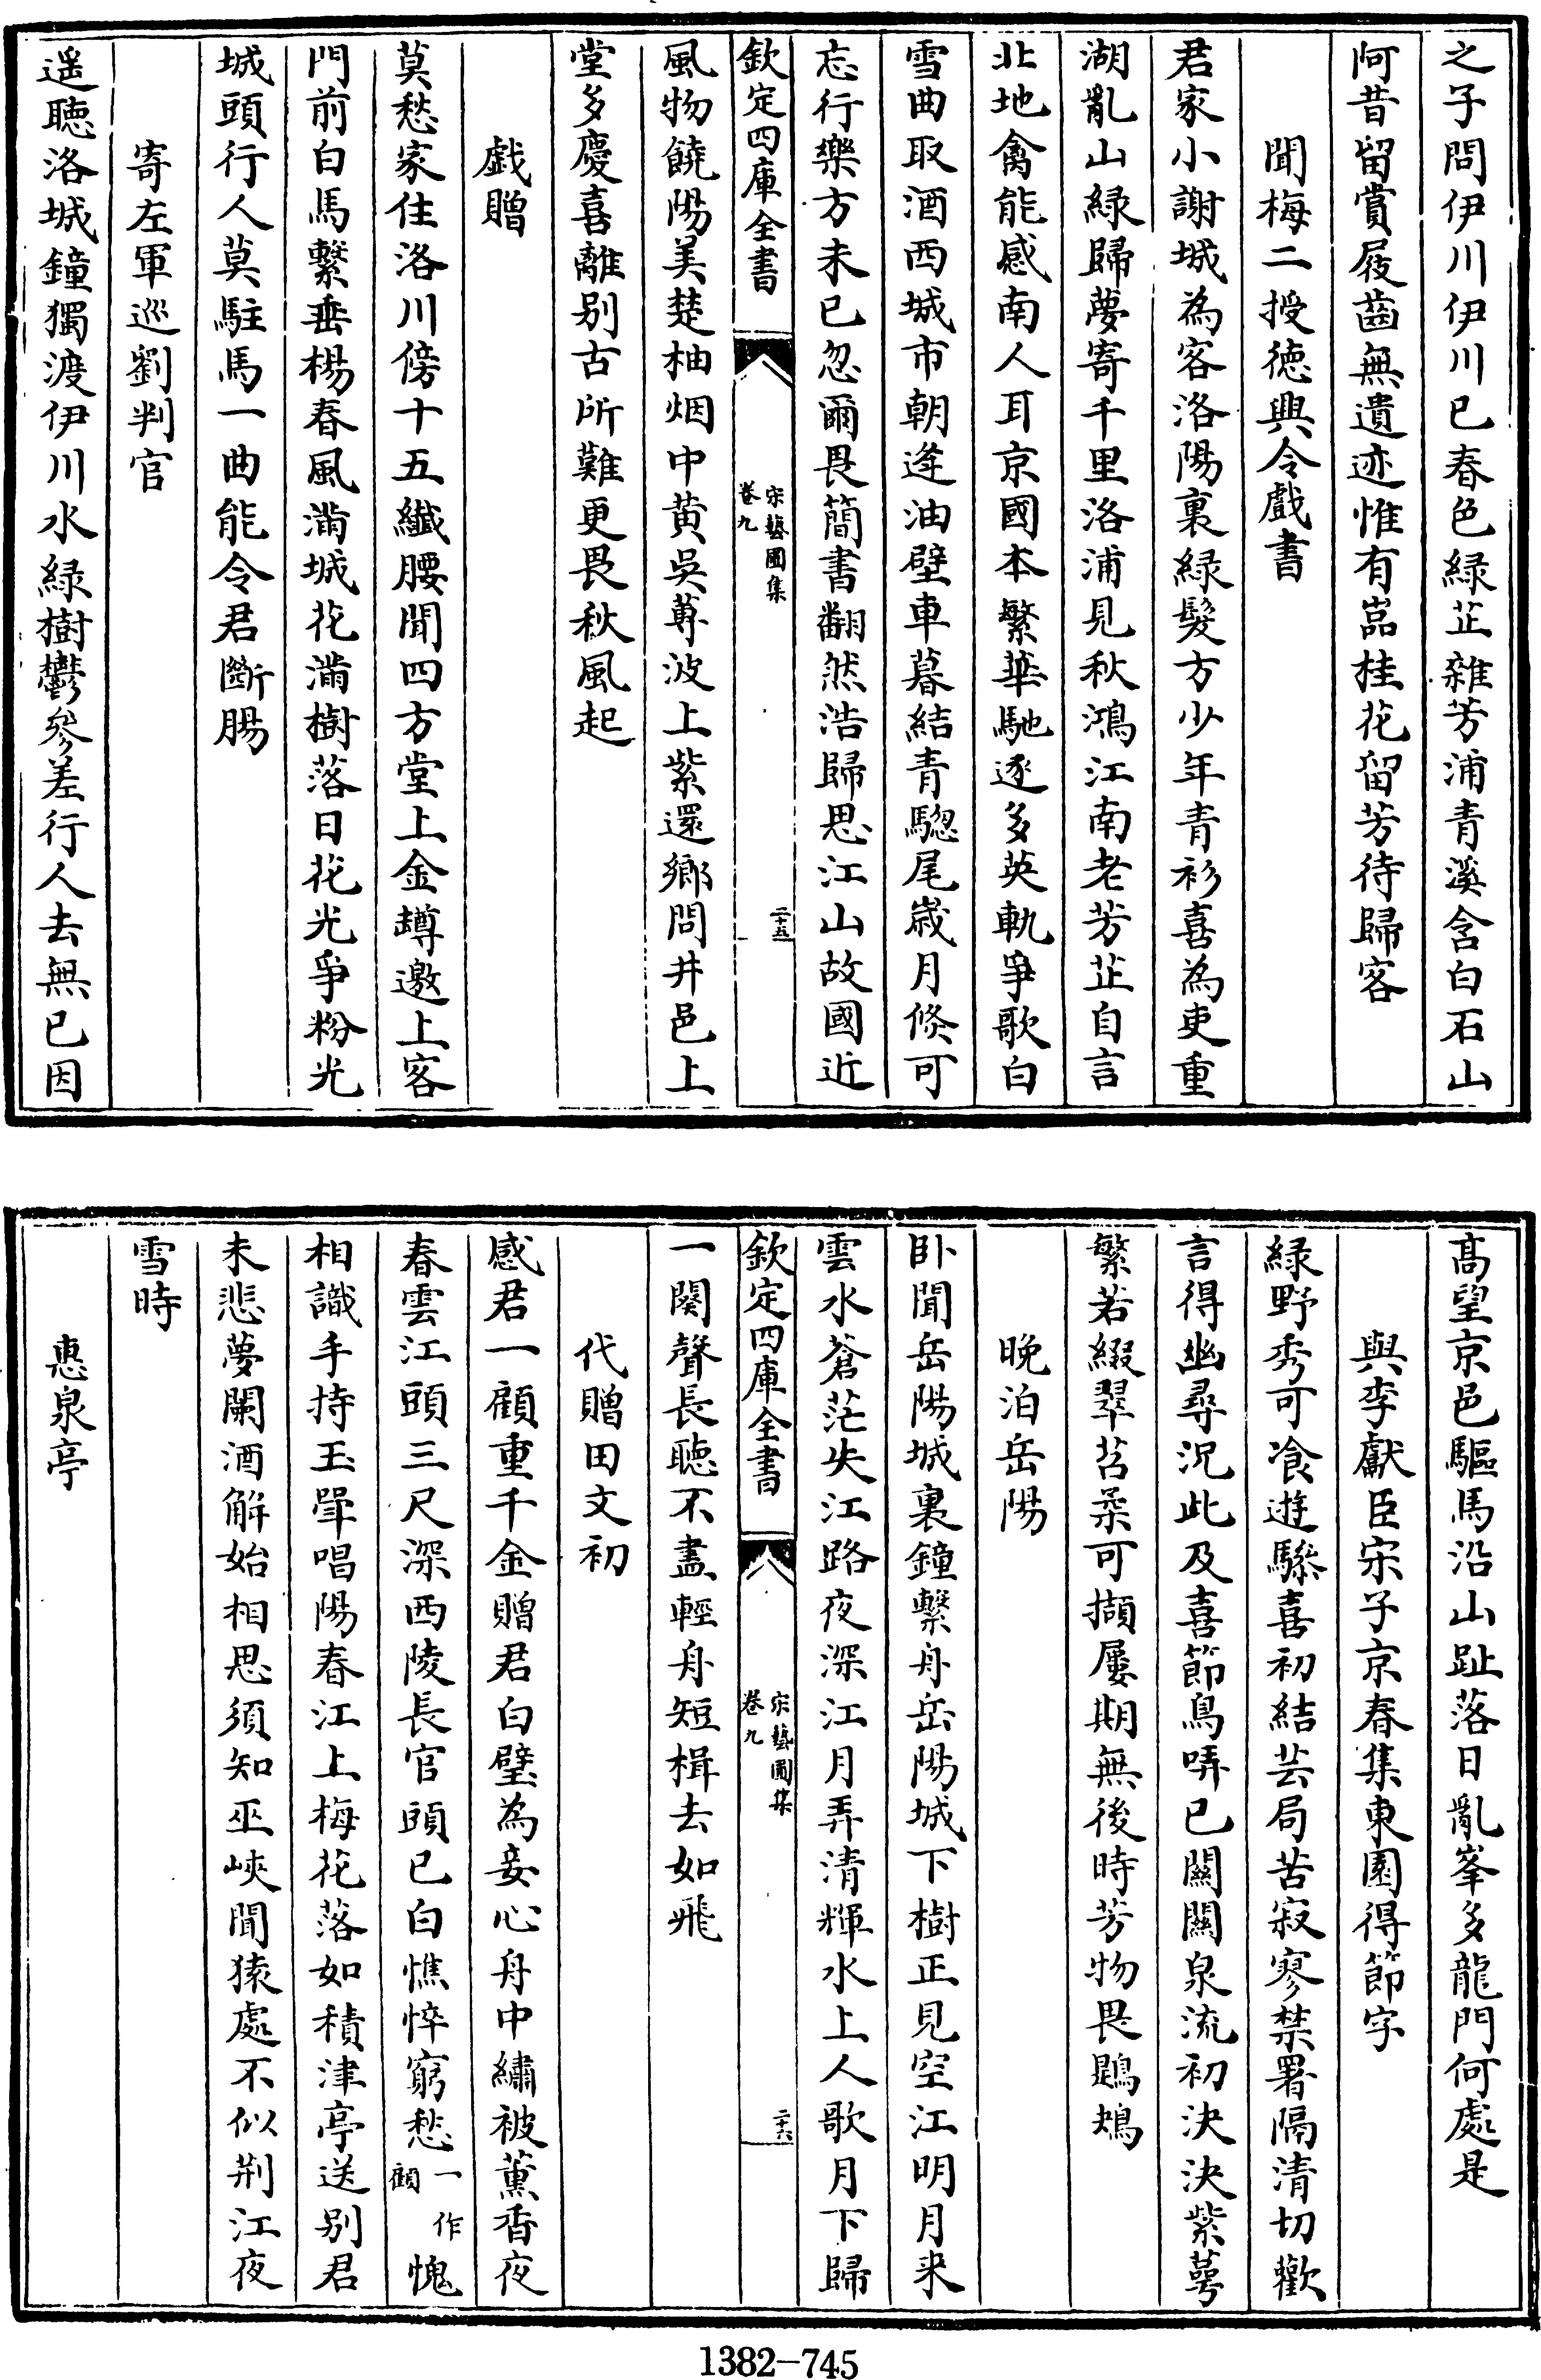 之子問伊川伊川已春色綠芷雜芳浦青溪含白石山
阿昔留賞屐齒無遺迹惟有嵓桂花留芳待歸客
聞梅二授德興令戲書
君家小謝城為客洛陽裏綠髮方少年青衫喜為吏重
湖亂山綠歸夢寄千里洛浦見秋鴻江南老芳芷自言
北地禽能感南人耳京國本繁華馳逐多英軌爭歌白
雪曲取酒西城市朝逢油壁車暮結青驄尾歲月倐可
忘行樂方未已忽爾畏簡書翻然浩歸思江山故國近
欽定四庫全書
宋藝圃集
卷九
二十五
風物饒陽美楚柚烟中黃吳蓴波上紫還鄉問井邑上
堂多慶喜離别古所難更畏秋風起
戲贈
莫愁家住洛川傍十五纎腰聞四方堂上金罇邀上客
門前白馬繫垂楊春風滿城花滿樹落日花光爭粉光
城頭行人莫駐馬一曲能令君斷腸
寄左軍巡劉判官
遥聽洛城鐘獨渡伊川水綠樹鬱參差行人去無已因
髙望京邑驅馬沿山趾落日亂峯多龍門何處是
與李獻臣宋子京春集東園得節字
綠野秀可飡遊驂喜初結芸局苦寂寥禁署隔清切歡
言得幽尋況此及喜節鳥哢已關關泉流初決決紫萼
繁若綴翠苕柔可擷屢期無後時芳物畏鶗鴂
晚泊岳陽
卧聞岳陽城裏鐘繫舟岳陽城下樹正見空江明月来
雲水蒼茫失江路夜深江月弄清輝水上人歌月下歸
欽定四庫全書
宋藝圃集
卷九
二十六
一闋聲長聽不盡輕舟短楫去如飛
代贈田文初
感君一顧重千金贈君白璧為妾心舟中繡被薰香夜
春雲江頭三尺深西陵長官頭已白憔悴窮愁一作顧愧
相識手持玉斝唱陽春江上梅花落如積津亭送别君
未悲夢闌酒解始相思須知巫峽聞猿處不似荆江夜
雪時
惠泉亭
1382-745